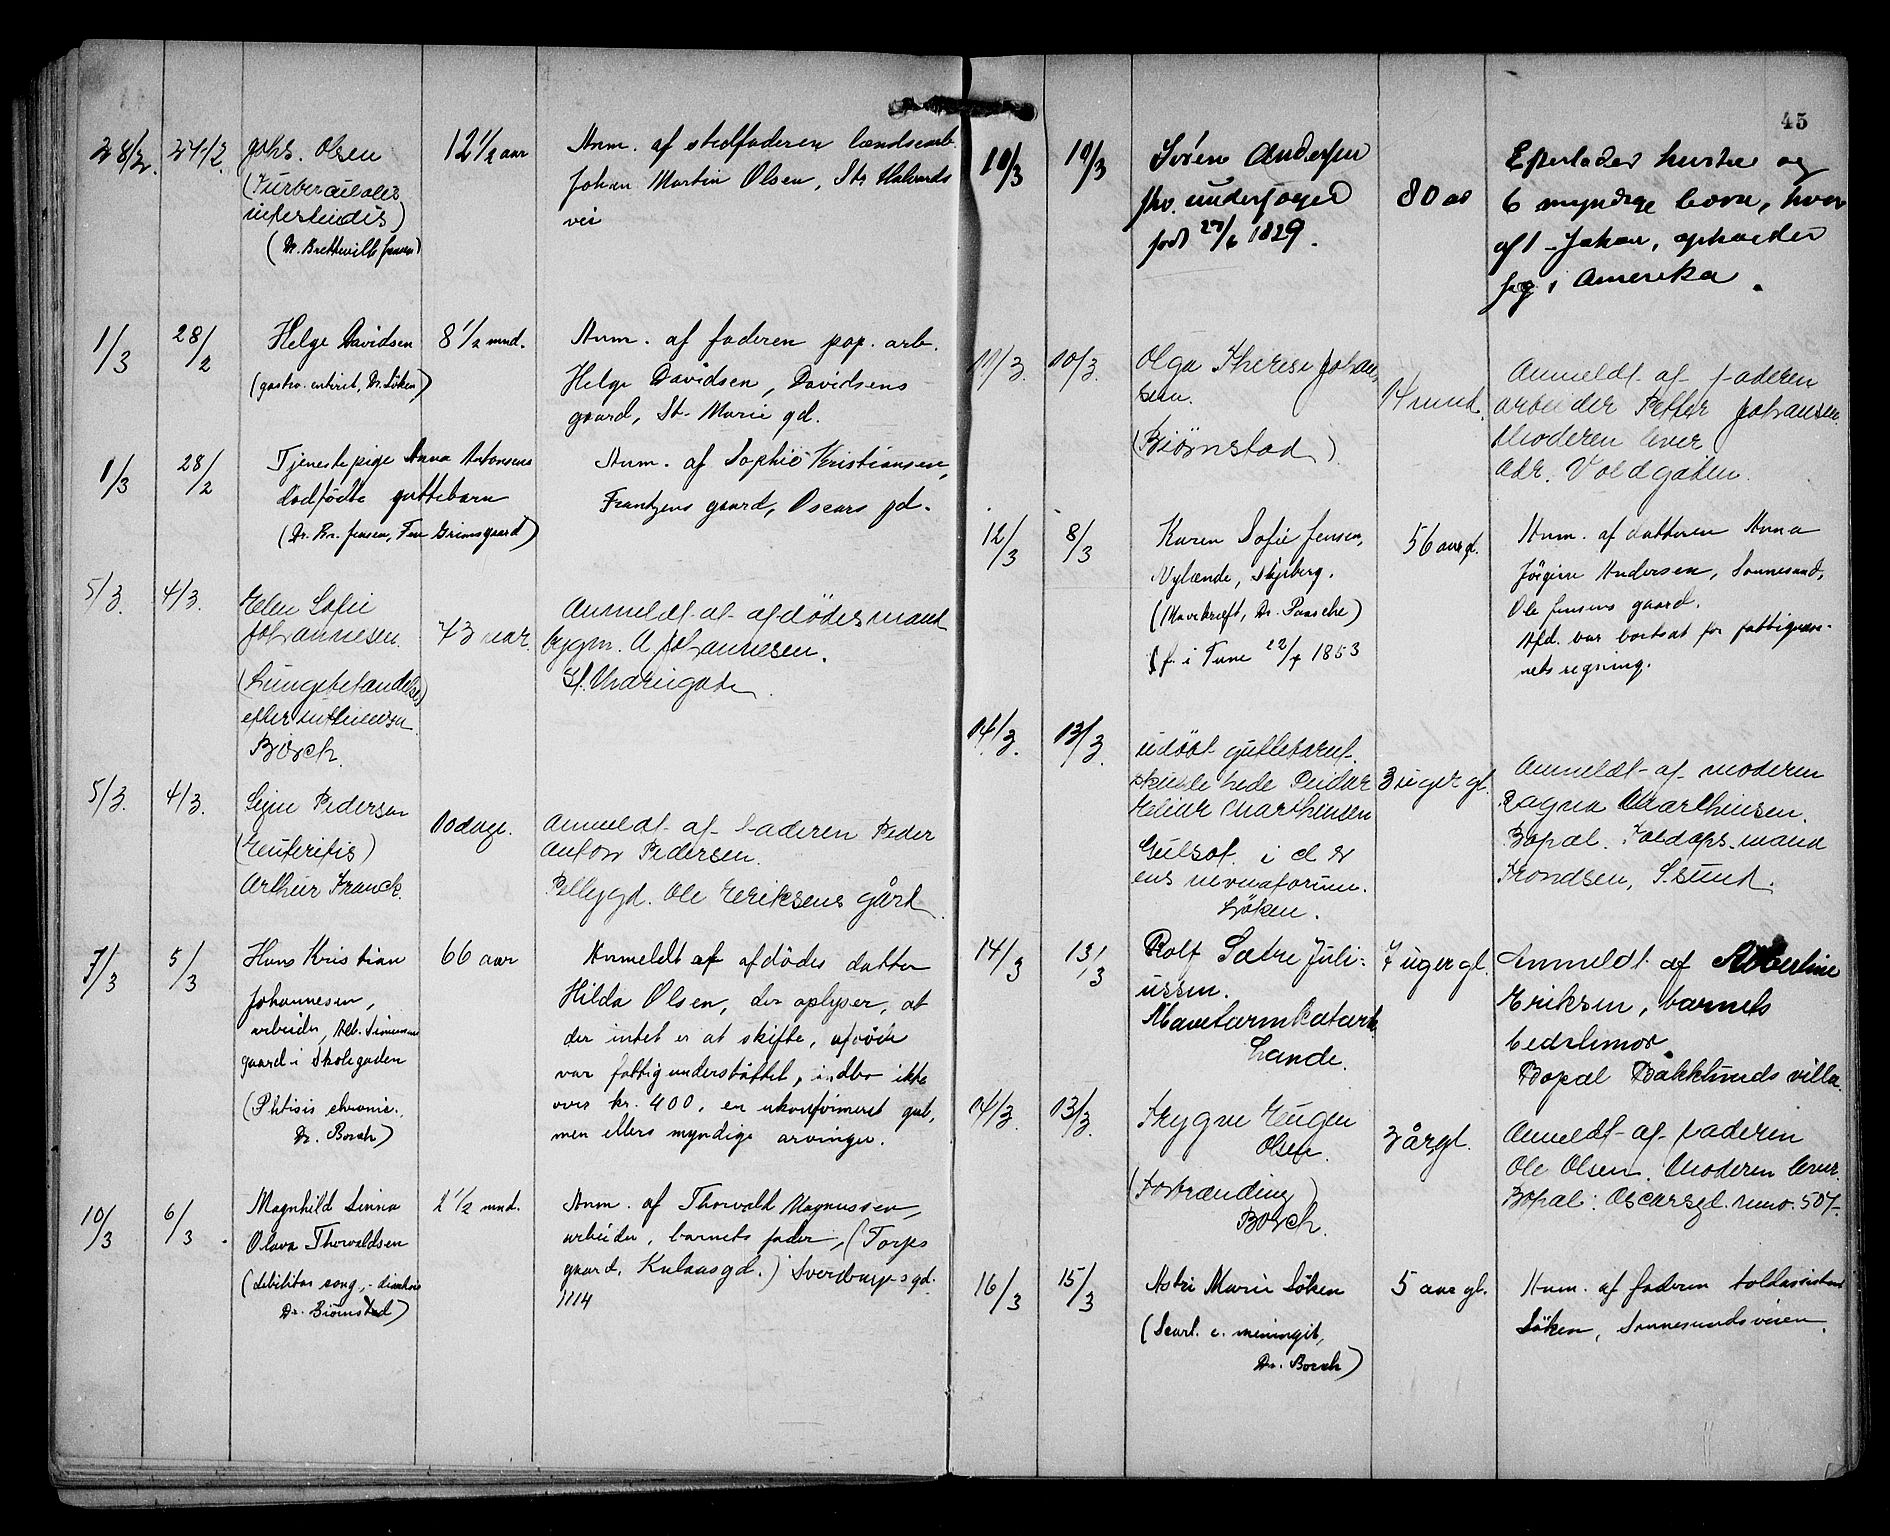 45
28/2. 24/2. Johs. Olsen 12 1/2 aar Anm. af stedfaderen
Johan Martin Olsen, St. Halvards
vei
1/3 28/2 Helge Davidsen 8 1/2 mnd. Anm. af faderen pap. arb.
(gastro. enterit, Dr. Löken) Helge Davidsen, Davidsens
gaard, St. Marie gd.
1/3 28/2 Tjenestepige Anna Antonsens Anm. af Sophie Kristiansen,
dödfödte guttebarn Frantzens gaard, Oscars gd.
(Dr. Kr. Jensen, Fru Grimsgaard)
5/3. 4/3. Elen Sofie Anmeldt af afdödes mand
Johannesen. 73 aar. bygm. A. Johannesen.
(Lungebetændelse St. Mariegaten.
efter influensa
Borch.
5/3. 4/3. Pedersen 10 dage. Anmeldt af faderen Peder
(Enteritis) Anton Pedersen.
Arthur Franck. Pellygd. Ole Eriksens gård.
7/3 5/3 Hans Kristian 66 aar Anmeldt af afdödes datter
Johannesen, Hilda Olsen, der oplyser, at
arbeider, der intet er at skifte, afdöde
gaard i Skolegaden var fattigunderstöttet, indbo ikke
(Phtisis chronic., over kr. 400, en ukonfirmeret gut,
Dr. Borch) men ellers myndige arvinger.
10/3 6/3. Magnhild Linna 2 1/2 mnd. Anm. af Thorvald Magnussen,
Olava Thorvaldsen arbeider, barnets fader, (Torps
(debilitas cong., gaard, Kulaasgd.) Sverdrups gd.
Dr. Biörnstad) 1114
10/3 10/3 Sören Andersen 80 aar Efterlader hustru og
fhv. underfoged 6 myndige börn, hvor
född 27/6 1829. af 1 - Johan, opholder
sig i Amerika.
11/3. 10/3. Olga Therese Johan- 14 mnd. Anmeldt af faderen
sen. arbeider Petter Johansen.
(Biørnstad) Moderen lever.
Adr. Voldgaten.
12/3 8/3 Karen Sofie Jensen, 56 aar gl. Anm. af datteren Anna
Nylænde, Skjeberg. Jörgine Andersen, Sannesund,
(Mavekræft, Dr. Paasche) Ole Jensens gaard.
f. i Tune 1853 Afd. var bortsat for fattigvæse-
nets regning.
14/3. 13/3. udöbt guttebarn 3 uger gl. Anmeldt af moderen
skulde hede Reidar Ragna Marthinsen.
Marthinsen Bopæl. Toldops.mand
Gulsot. Trondsen, S.sund.
Löken.
14/3 13/3 Rolf Sætre Juli- 7 uger gl. Anmeldt af Albertine
ussen. Eriksen, barnets
Mavetarmkatarrh. bedstemor.
Lande. Bopæl Bakklunds villa.
14/3. 13/3. Trygve Eugen 3 år gl. Anmeldt af faderen
Olsen. Ole Olsen. Moderen lever.
(Forbrænding) Bopæl: Oscarsgd. nmo. 507.
Borch.
16/3 15/3 Astri Marie Löken 5 aar gl. Anm. af faderen toldassistent
(Scarl. c. meningit, Löken, Sannesundsveien.
Dr. Borch)